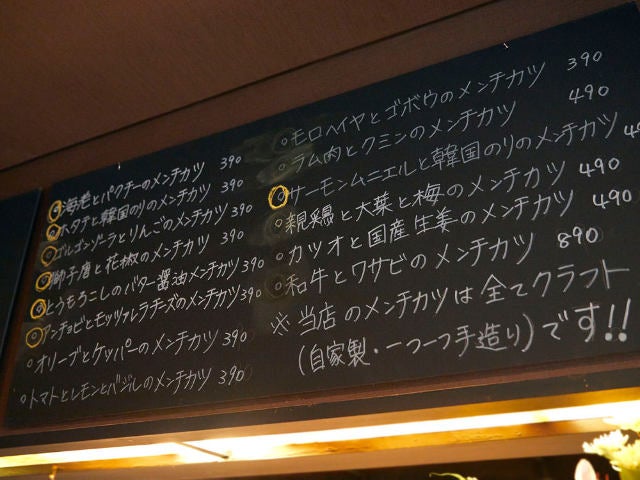 ○海老とパクチーのメンチカツ 390
○ホタテと韓国のりのメンチカツ 390
○ゴルゴンゾーラとりんごのメンチカツ 390
○獅子唐と花椒のメンチカツ 390
○とうもろこしのバター醤油メンチカツ 390
○アンチョビとモッツァレラチーズのメンチカツ 390
○オリーブとケッパーのメンチカツ 390
○トマトとレモンとバジルのメンチカツ 390
○モロヘイヤとゴボウのメンチカツ 390
○ラム肉とクミンのメンチカツ 490
○サーモンムニエルと韓国のりのメンチカツ
○親鶏と大葉と梅のメンチカツ 490
○カツオと国産生姜のメンチカツ 490
○和牛とワサビのメンチカツ 890
※当店のメンチカツは全てクラフト
(自家製・一つ一つ手造り)です!!